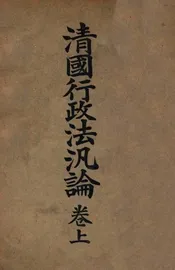 清國行政法汎論 卷上